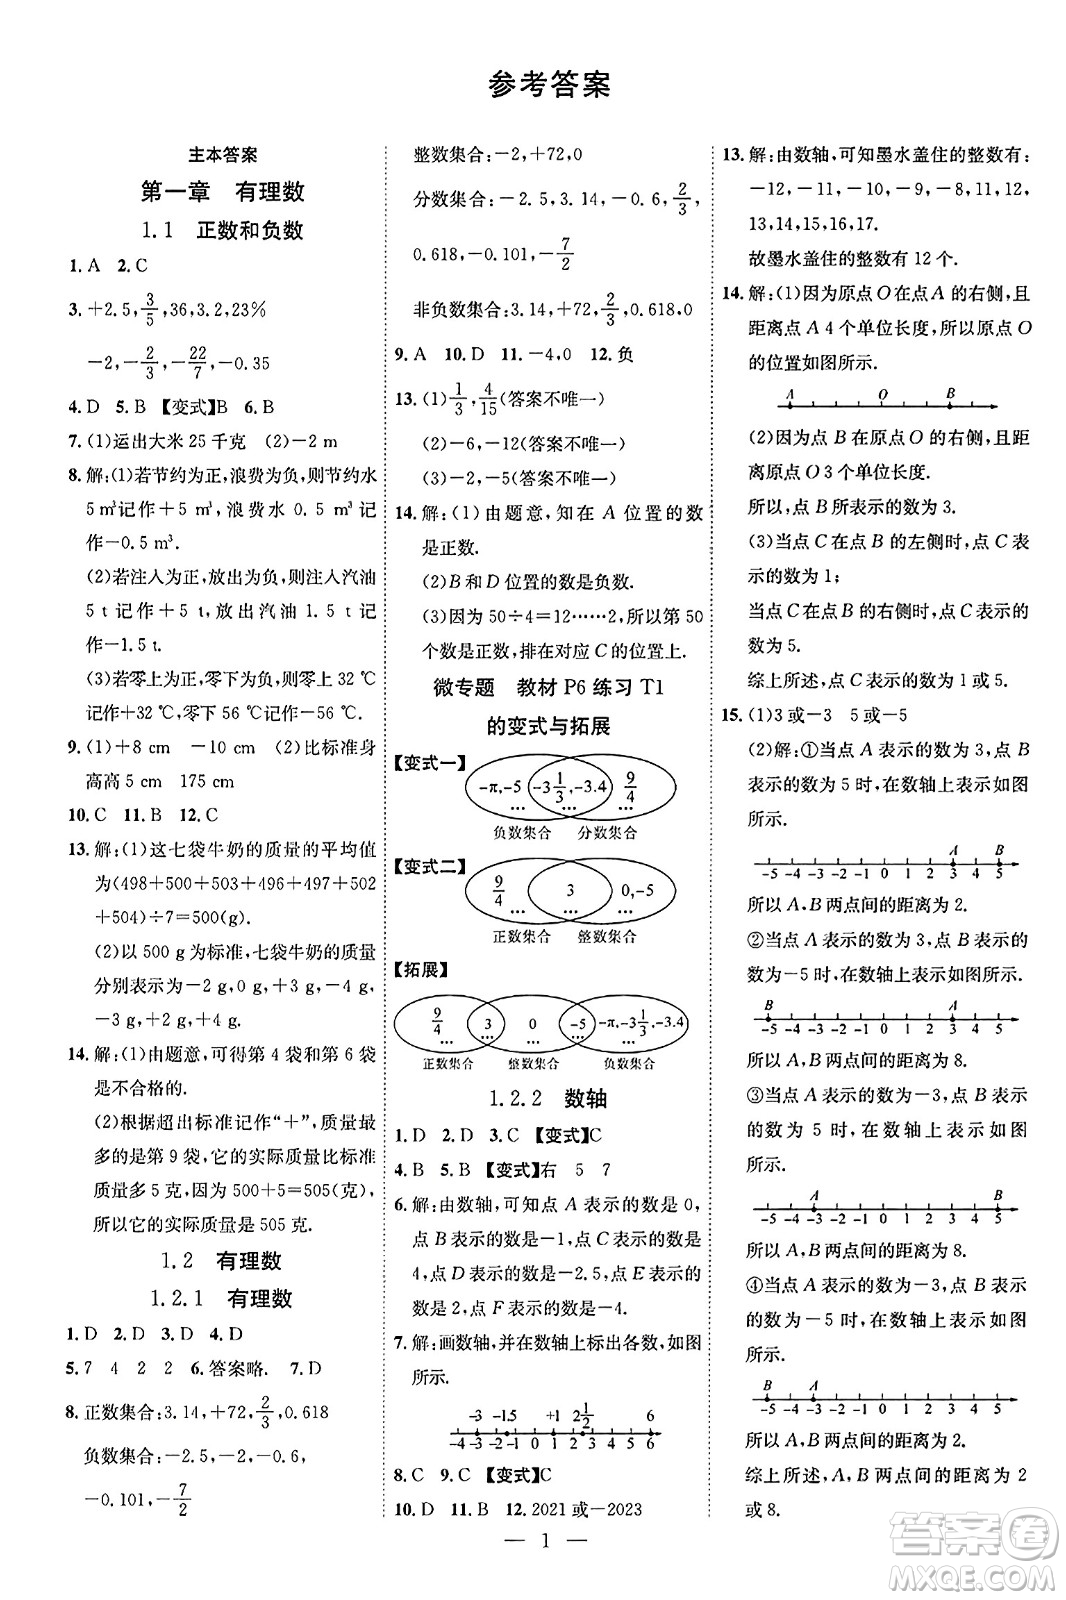 参考答案
主本答案
第一章 有理数
1.1 正数和负数
1. A 2. C
3. ＋2.5, 3/5, 36, 3.2, 23%
－2, －2/3, －22/7, －0.35
4. D 5. B 【变式】B 6. B
7. (1)运出大米 25 千克 (2)－2 m
8. 解:(1)若节约为正,浪费为负,则节约水
5 m³记作＋5 m³,浪费水 0.5 m³记
作－0.5 m³.
(2)若注入为正,放出为负,则注入汽油
5 t 记作＋5 t,放出汽油 1.5 t 记
作－1.5 t.
(3)若零上为正,零下为负,则零上 32 ℃
记作＋32 ℃,零下 56 ℃记作－56 ℃.
9. (1)＋8 cm －10 cm (2)比标准身
高高 5 cm 175 cm
10. C 11. B 12. C
13. 解:(1)这七袋牛奶的质量的平均值
为(498＋500＋503＋496＋497＋502
＋504)÷7＝500(g).
(2)以 500 g 为标准,七袋牛奶的质量
分别表示为－2 g,0 g,＋3 g,－4 g,
－3 g,＋2 g,＋4 g.
14. 解:(1)由题意,可得第 4 袋和第 6 袋
是不合格的.
(2)根据超出标准记作“＋”,质量最多
的是第 9 袋,它的实际质量比标准
质量多 5 克,因为 500＋5＝505(克),
所以它的实际质量是 505 克.
1.2 有理数
1.2.1 有理数
1. D 2. D 3. D 4. D
5. 7 4 2 2 6. 答案略. 7. D
8. 正数集合:3.14,＋72, 2/3, 0.618
负数集合:－2.5,－2,－0.6,
－0.101,－7/2
整数集合:－2,＋72,0
分数集合:－2.5,3.14,－0.6, 2/3,
0.618,－0.101,－7/2
非负数集合:3.14,＋72, 2/3, 0.618,0
9. A 10. D 11. －4,0 12. 负
13. (1) 1/3, 4/15 (答案不唯一)
(2)－6,－12(答案不唯一)
(3)－2,－5(答案不唯一)
14. 解:(1)由题意,知在 A 位置的数
是正数.
(2)B 和 D 位置的数是负数.
(3)因为 50÷4＝12……2,所以第 50
个数是正数,排在对应 C 的位置上.
微专题 教材 P6 练习 T1
的变式与拓展
【变式一】
-π,-5 -3 1/3,-3.4 9/4
… … …
负数集合 分数集合
【变式二】
9/4 3 0,-5
… … …
正数集合 整数集合
【拓展】
9/4 3 0 -5 -π,-3 1/3,-3.4
… … … … …
正数集合 整数集合 负数集合
1.2.2 数轴
1. D 2. D 3. C 【变式】C
4. B 5. B 【变式】右 5 7
6. 解:由数轴,可知点 A 表示的数是 0,
点 B 表示的数是－1,点 C 表示的数是
4,点 D 表示的数是－2.5,点 E 表示的
数是 2,点 F 表示的数是－4.
7. 解:画数轴,并在数轴上标出各数,如图
所示.
-3 -1.5 +1 2 1/2 6
-4 -3 -2 -1 0 1 2 3 4 5 6
8. C 9. C 【变式】C
10. D 11. B 12. 2021 或－2023
13. 解:由数轴,可知墨水盖住的整数有:
－12,－11,－10,－9,－8,11,12,
13,14,15,16,17.
故墨水盖住的整数有 12 个.
14. 解:(1)因为原点 O 在点 A 的右侧,且
距离点 A 4 个单位长度,所以原点 O
的位置如图所示.
A O B
(2)因为点 B 在原点 O 的右侧,且距
离原点 O 3 个单位长度.
所以,点 B 表示的数为 3.
(3)当点 C 在点 B 的左侧时,点 C 表
示的数为 1;
当点 C 在点 B 的右侧时,点 C 表示的
数为 5.
综上所述,点 C 表示的数为 1 或 5.
15. (1)3 或－3 5 或－5
(2)解:①当点 A 表示的数为 3,点 B
表示的数为 5 时,在数轴上表示如图
所示.
A B
-5 -4 -3 -2 -1 0 1 2 3 4 5
所以 A,B 两点间的距离为 2.
②当点 A 表示的数为 3,点 B 表示的
数为－5 时,在数轴上表示如图所示.
B A
-5 -4 -3 -2 -1 0 1 2 3 4 5
所以 A,B 两点间的距离为 8.
③当点 A 表示的数为－3,点 B 表示的
数为 5 时,在数轴上表示如图
所示.
A B
-5 -4 -3 -2 -1 0 1 2 3 4 5
所以 A,B 两点间的距离为 8.
④当点 A 表示的数为－3,点 B 表示
的数为－5 时,在数轴上表示如图
所示.
B A
-5 -4 -3 -2 -1 0 1 2 3 4 5
所以 A,B 两点间的距离为 2.
综上所述,A,B 两点间的距离为 2
或 8.
— 1 —
答案圈
MXQE.COM